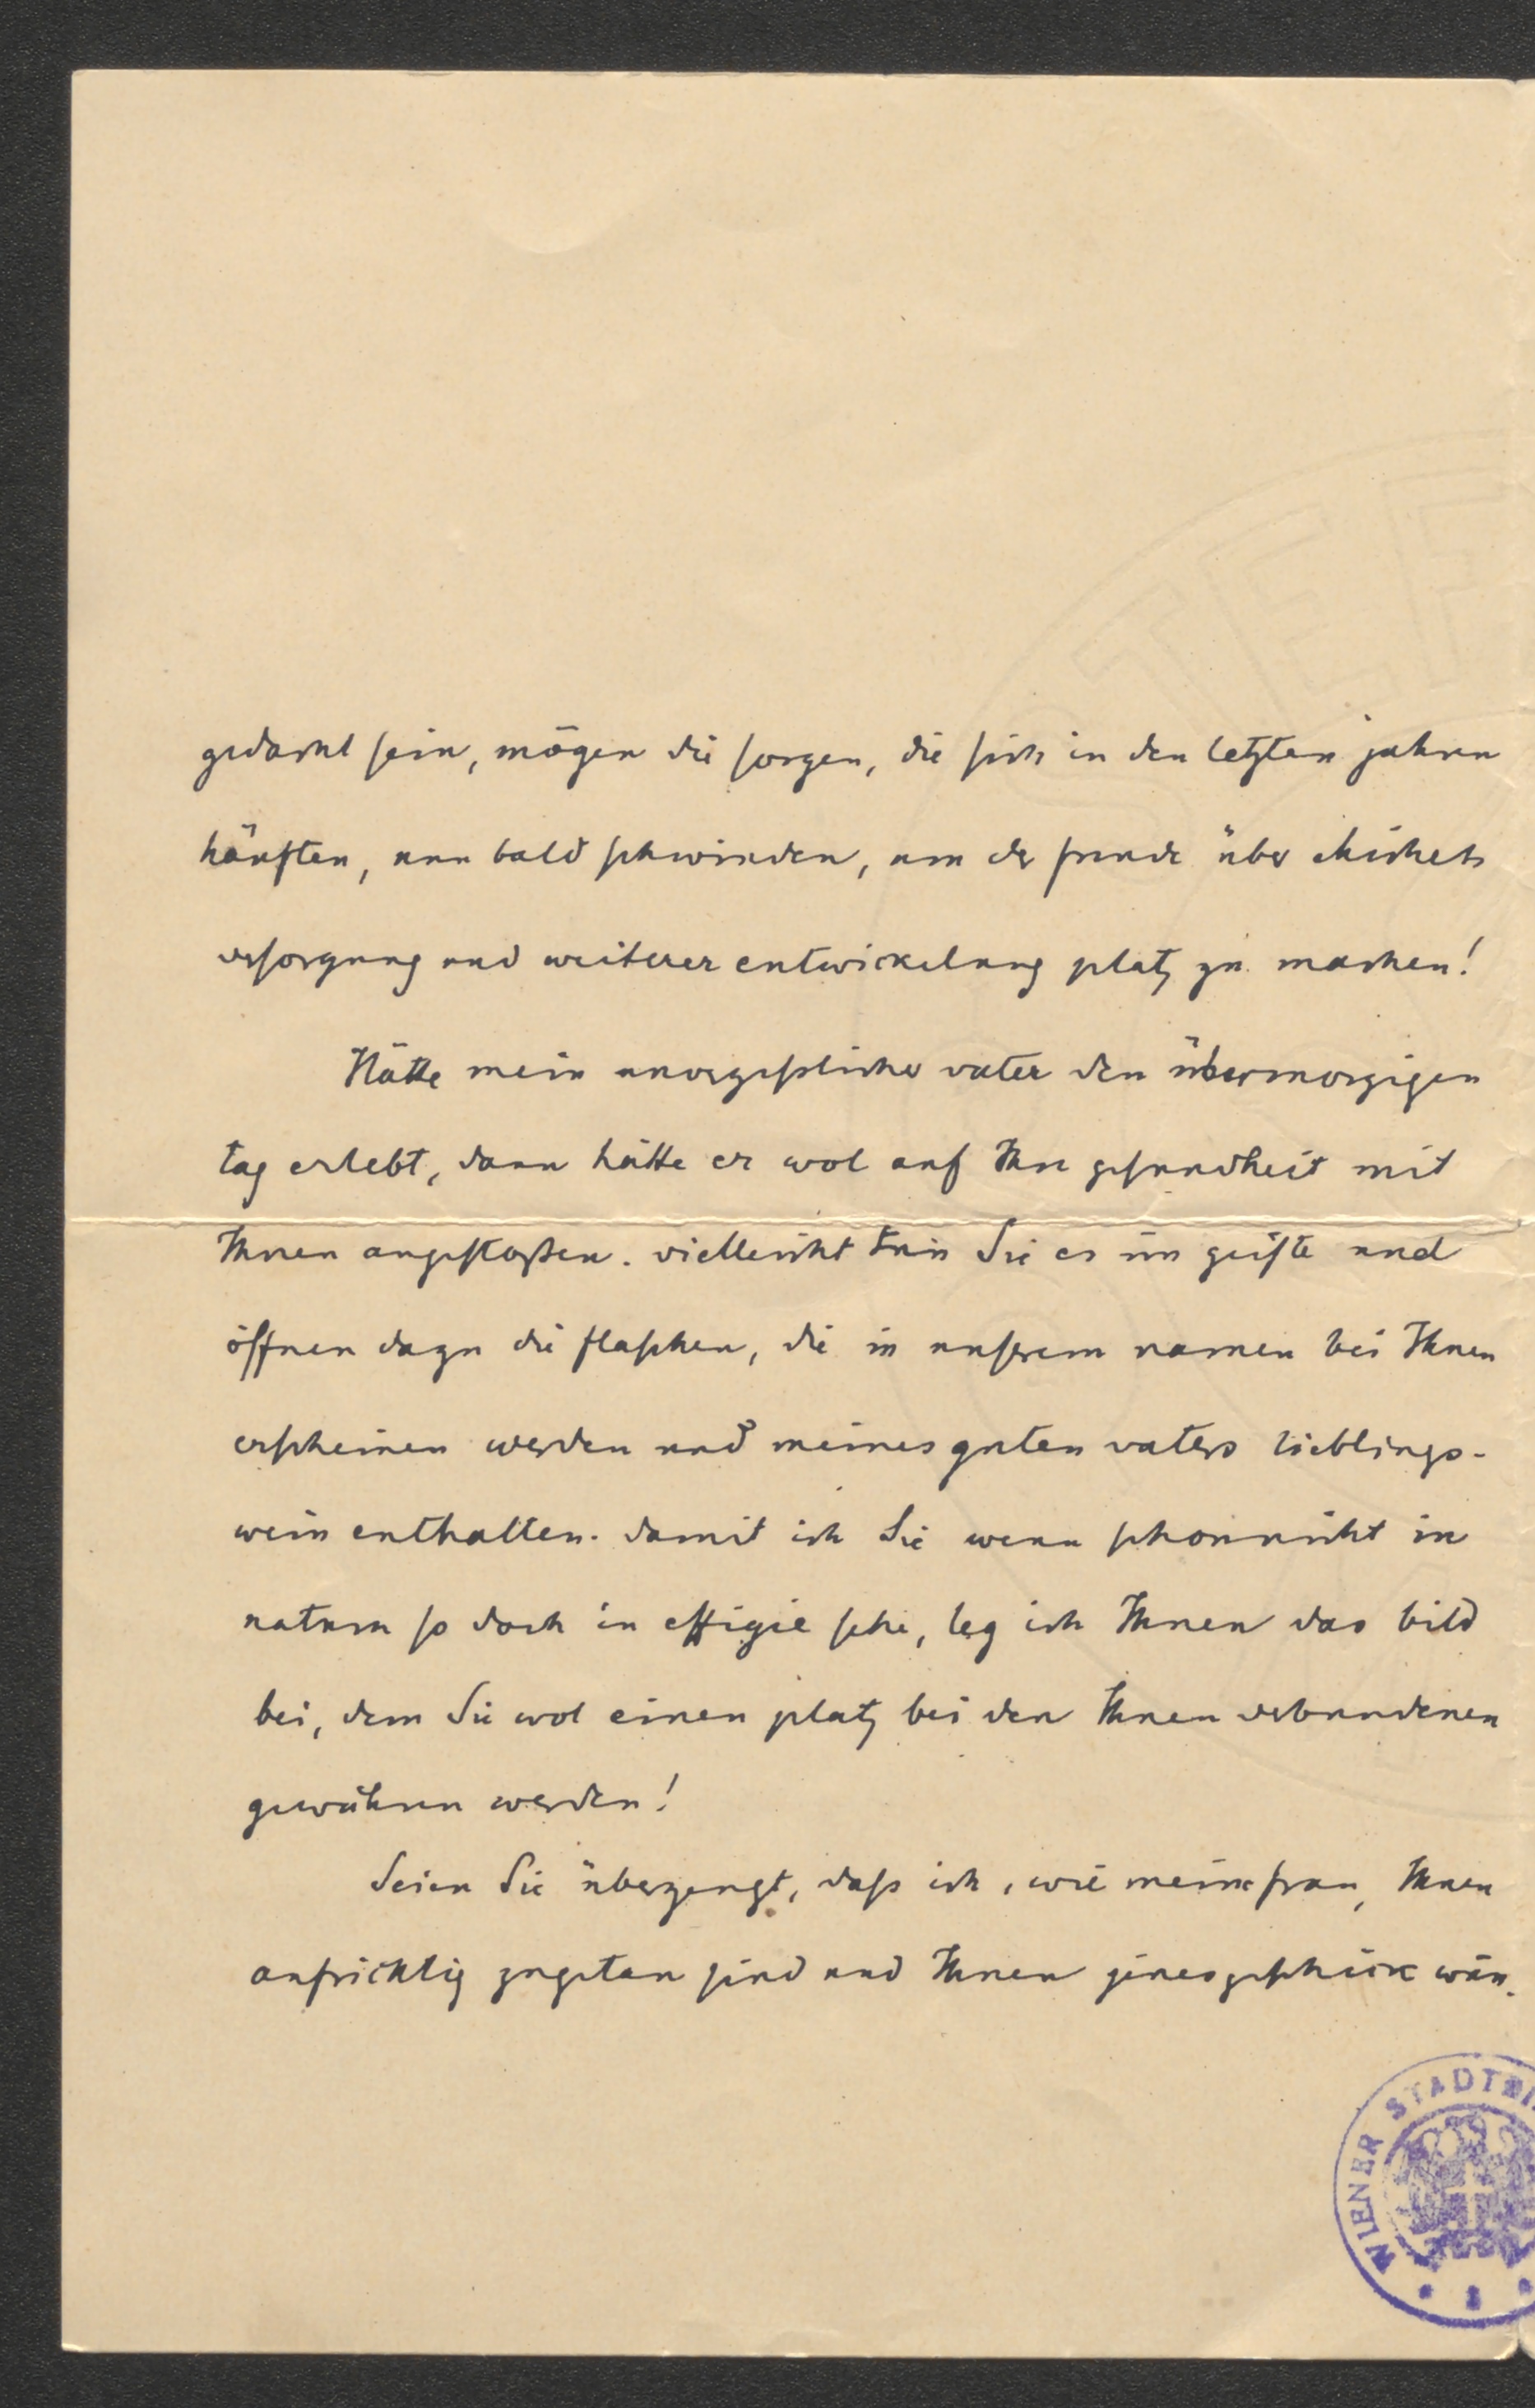 gedacht sein, mögen die sorgen, die sich in den letzten jahren
häuften, nun bald schwinden, um der freude über Michels
versorgung und weiterer entwickelung platz zu machen!
Hätte mein unvergeslicher vater den übermorgigen
tag erlebt, dann hätte er wol auf Ihre gesundheit mit
Ihnen angestoßen. vielleicht tun Sie es im geiste und
öffnen dazu die flaschen, die in unserem namen bei Ihnen
erscheinen werden und meines guten vaters lieblings-
wein enthalten. damit ich Sie wenn schon nicht in
natura so doch in effigie sehe, leg ich Ihnen das bild
bei, dem Sie wol einen platz bei den Ihnen verbundenen
gewähren werden!
Seien Sie überzeugt, dass ich, wie meine frau, Ihnen
aufrichtig zugetan sind und Ihnen jenes geschick wün-
WIENER STADTBI